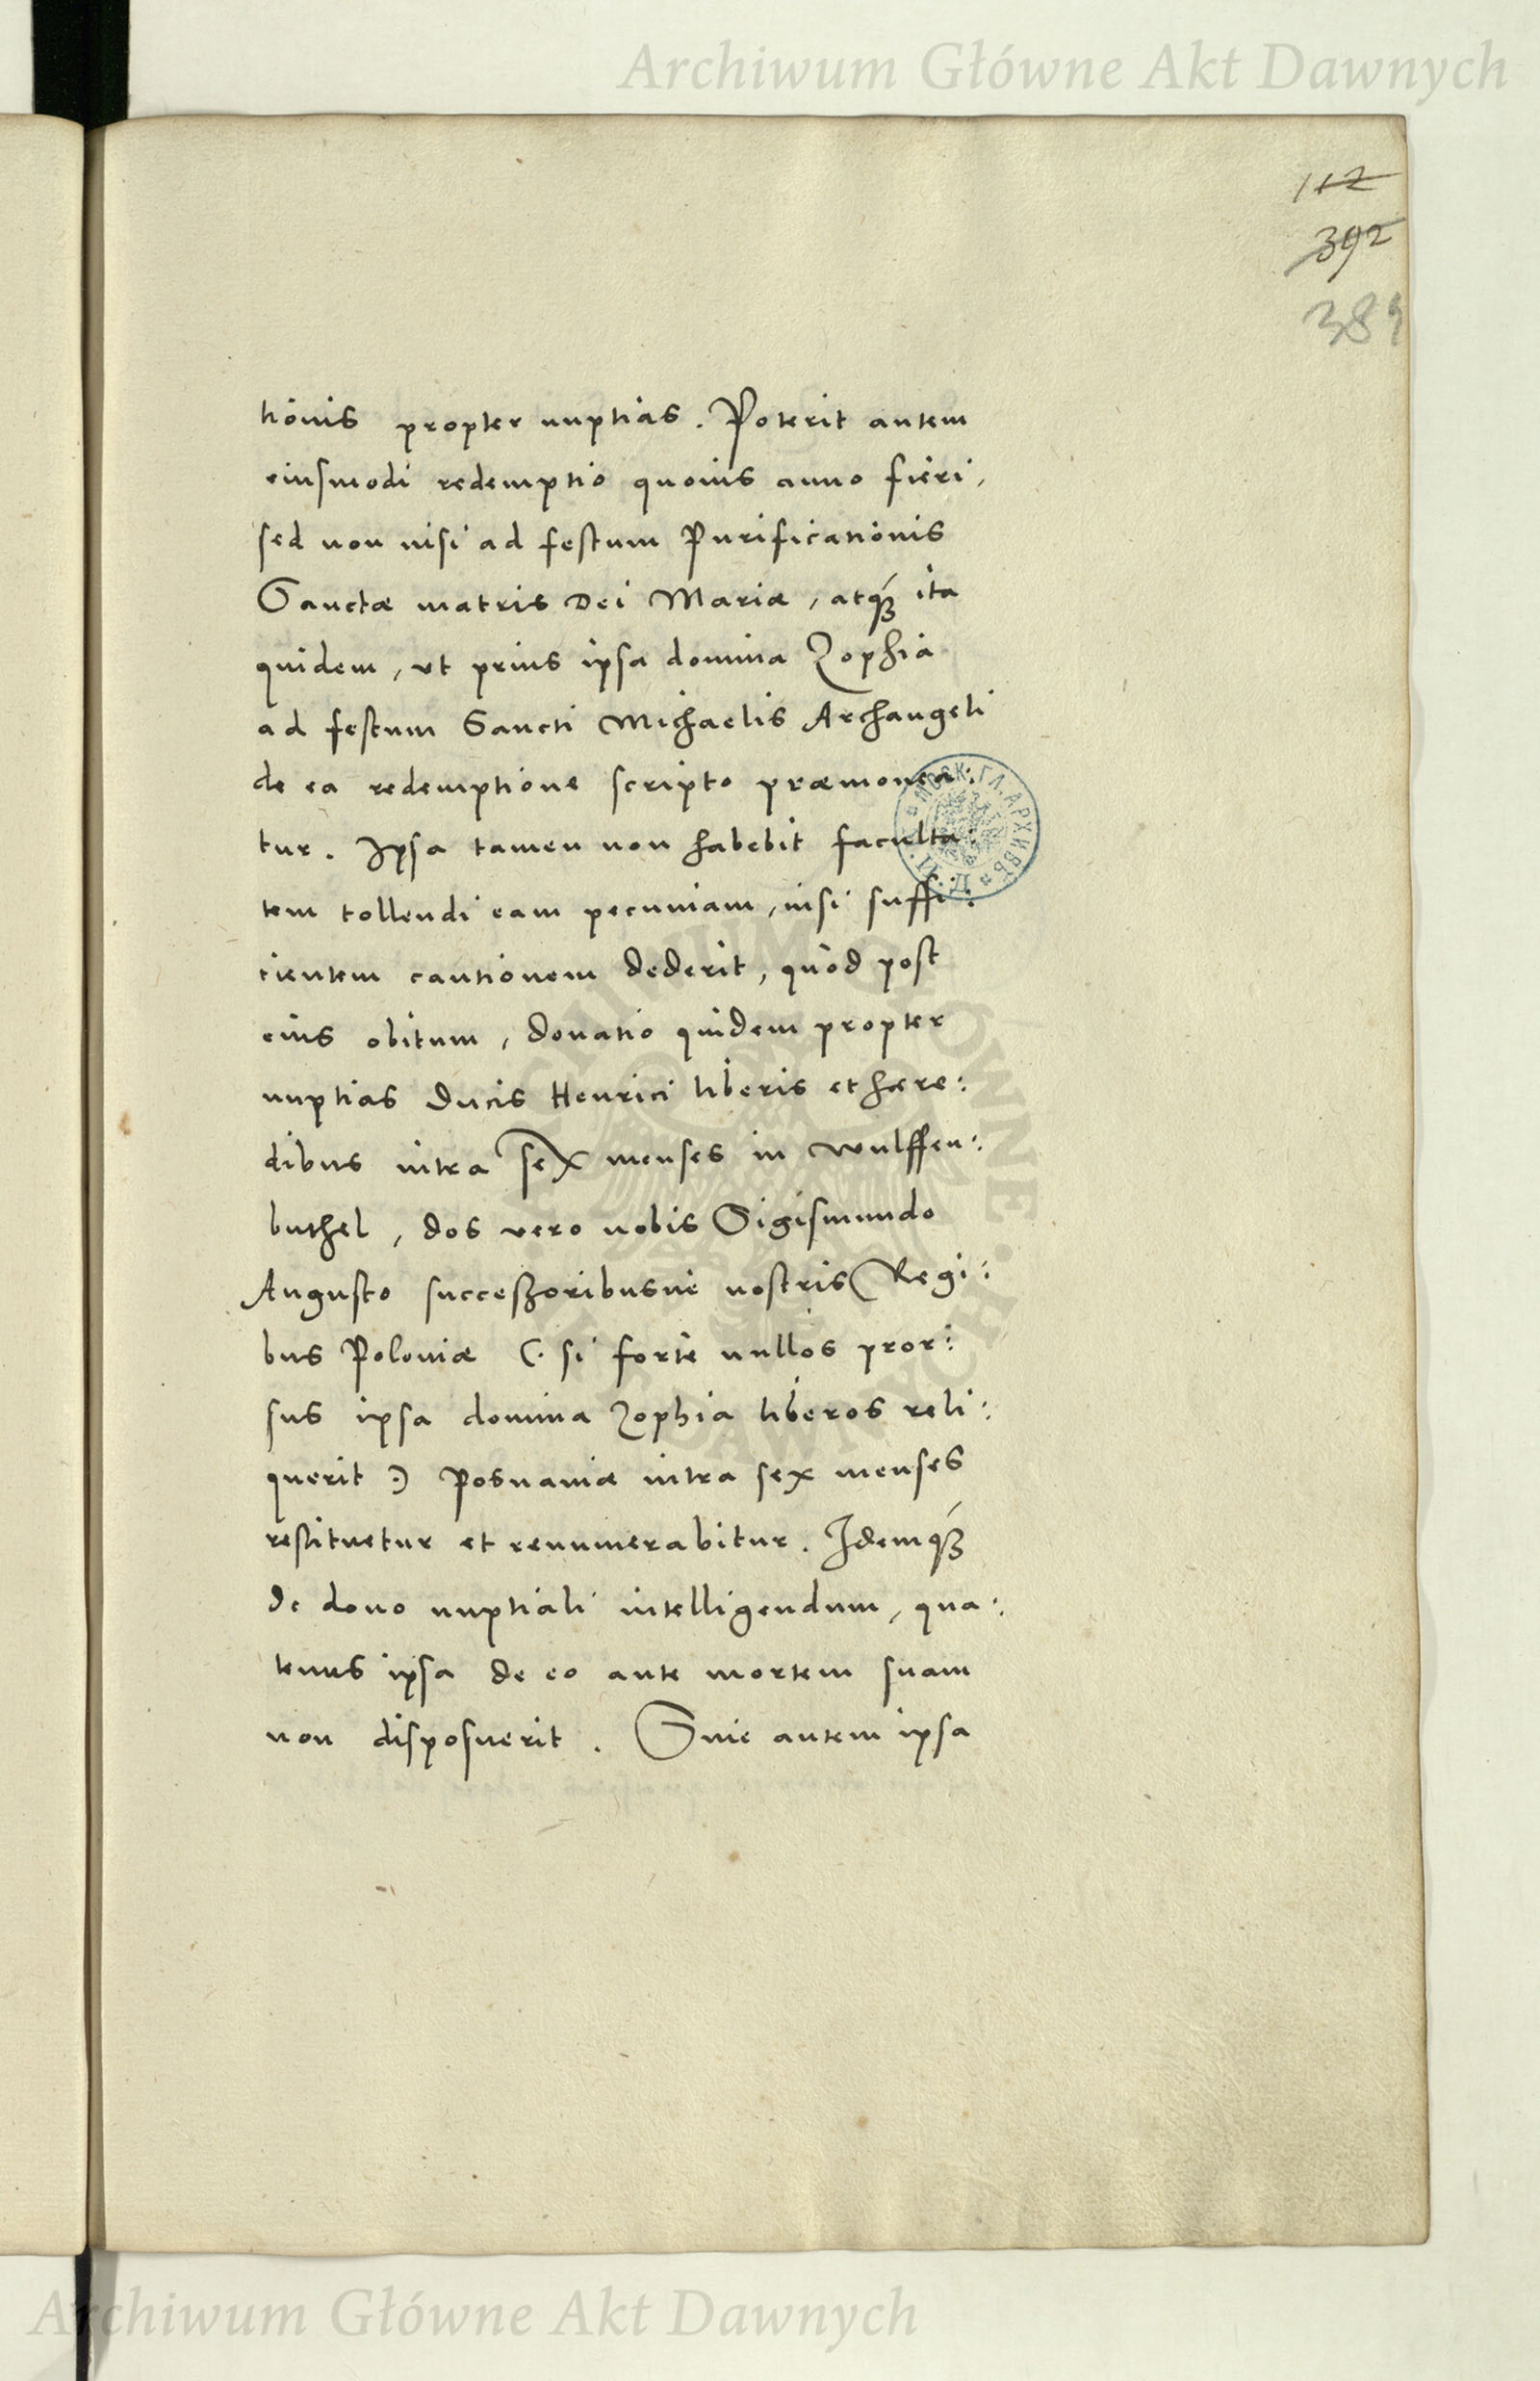 Archiwum Główne Akt Dawnych
112
392
389
tionis propter nuptias. Poterit autem
eiusmodi redemptio quouis anno fieri,
sed non nisi ad festum Purificationis
Sanctæ matris Dei Mariæ, atq́ꝫ ita
quidem, vt prius ipsa domina Zophia
ad festum Sancti Michaelis Archangeli
de ea redemptione scripto præmonea:
tur. Ipsa tamen non habebit faculta:
tem tollendi eam pecuniam, nisi suffi:
cientem cautionem dederit, quòd post
eius obitum, donatio quidem propter
nuptias Ducis Henrici liberis et hære:
dibus intra sex menses in Wulffen:
buthel, dos vero nobis Sigismundo
Augusto successoribusue nostris Regi:
bus Poloniæ (: si forte nullos pror:
sus ipsa domina Zophia liberos reli:
querit :) Posnaniæ intra sex menses
restituetur et renumerabitur. Idemq́ꝫ
de dono nuptiali intelligendum, qua:
tenus ipsa de eo ante mortem suam
non disposuerit. Siue autem ipsa
МОСК. ГЛ. АРХИВЪ
Archiwum Główne Akt Dawnych